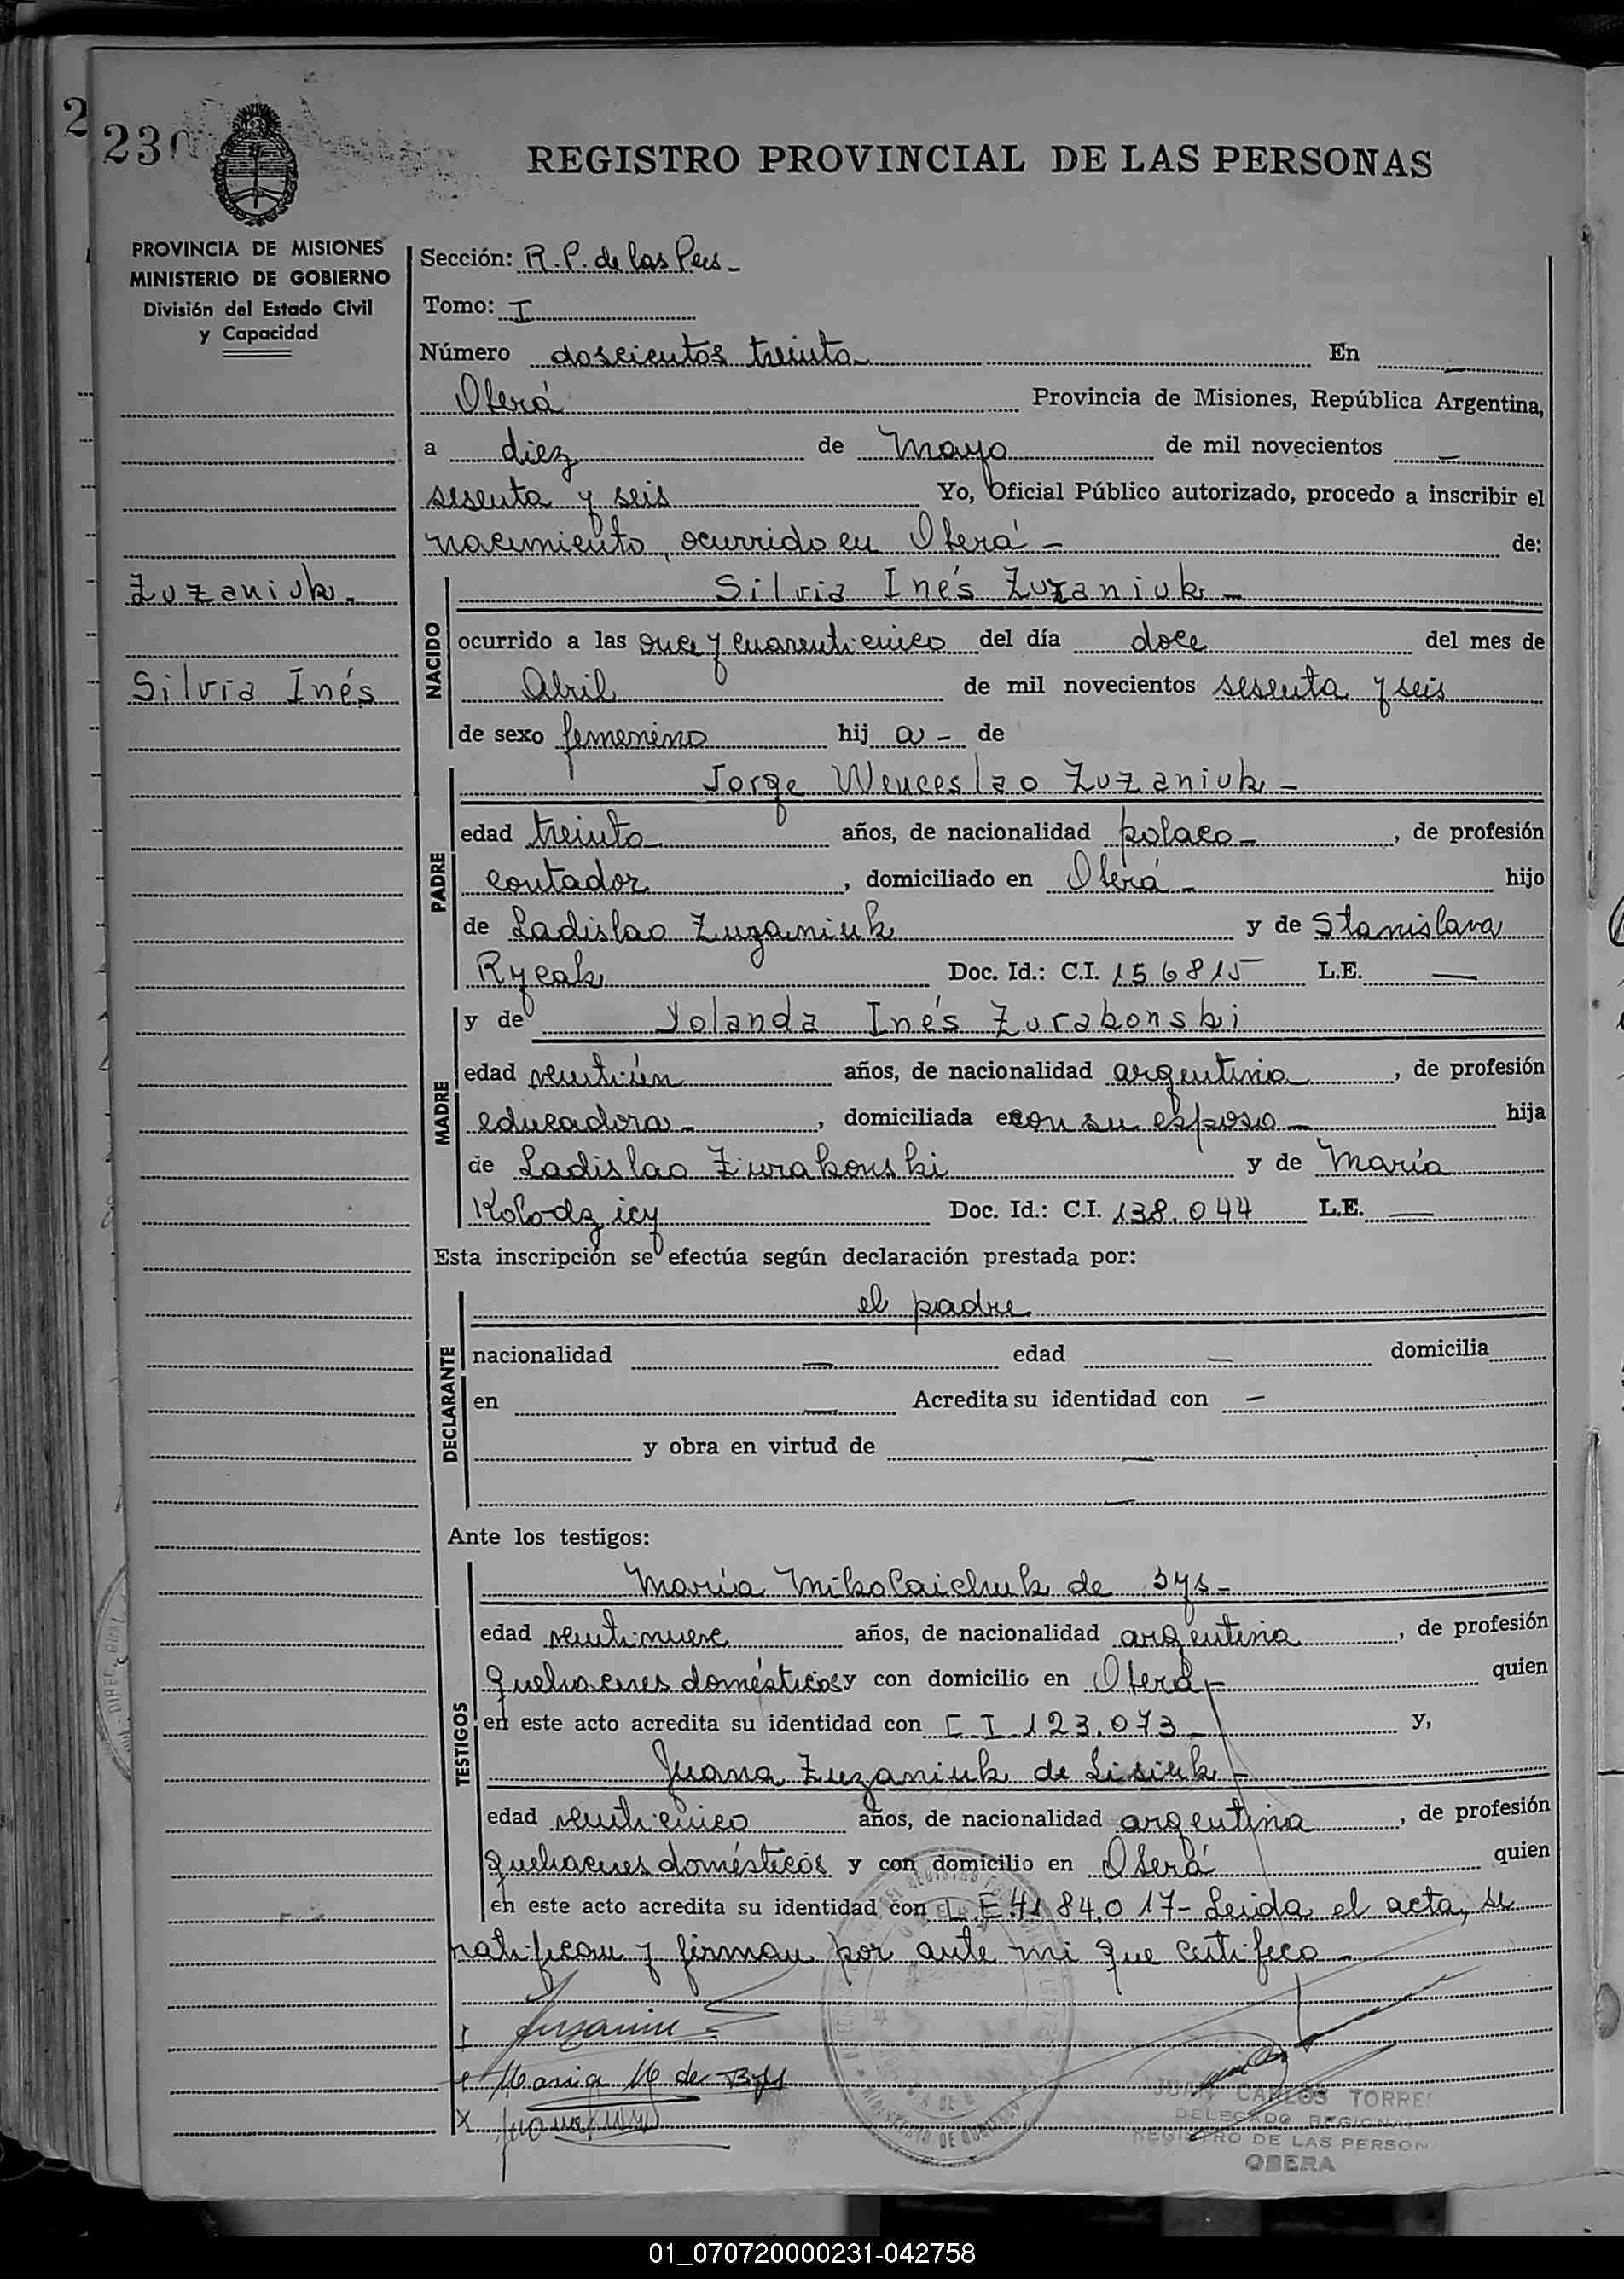 2
230
REGISTRO PROVINCIAL DE LAS PERSONAS
PROVINCIA DE MISIONES
MINISTERIO DE GOBIERNO
División del Estado Civil
y Capacidad
Sección: R.P. de las Pers -
Tomo: I
Número doscientos treinta En —
Oberá Provincia de Misiones, República Argentina,
a diez de Mayo de mil novecientos —
sesenta y seis Yo, Oficial Público autorizado, procedo a inscribir el
nacimiento, ocurrido en Oberá - de:
Zuzaniuk -
Silvia Inés
NACIDO
Silvia Inés Zuzaniuk -
ocurrido a las once y cuarenticinco del día doce del mes de
Abril de mil novecientos sesenta y seis
de sexo femenino hij a - de
PADRE
Jorge Wenceslao Zuzaniuk -
edad treinta años, de nacionalidad polaco -, de profesión
contador, domiciliado en Oberá - hijo
de Ladislao Zuzaniuk y de Stanislava
Rycak Doc. Id.: C.I. 156815 L.E. —
MADRE
y de Yolanda Inés Zurakonski
edad ventiún años, de nacionalidad argentina, de profesión
educadora -, domiciliada con su esposo - hija
de Ladislao Zurakonski y de María
Kolodziey Doc. Id.: C.I. 138.044 L.E. —
Esta inscripción se efectúa según declaración prestada por:
DECLARANTE
el padre
nacionalidad — edad — domicilia
en — Acredita su identidad con —
y obra en virtud de —
—
Ante los testigos:
TESTIGOS
María Mikolaichuk de Bys -
edad ventinueve años, de nacionalidad argentina, de profesión
quehaceres domésticos y con domicilio en Oberá - quien
en este acto acredita su identidad con C I 123.073 - y,
Juana Zuzaniuk de Lisiuk -
edad venticinco años, de nacionalidad argentina, de profesión
quehaceres domésticos y con domicilio en Oberá quien
en este acto acredita su identidad con L E 4184.017 - Leida el acta, se
ratifican y firman por ante mi que certifico -
Maria M de Bys
JUAN CARLOS TORRES
DELEGADO REGIONAL
REGISTRO DE LAS PERSON
OBERA
01_070720000231-042758